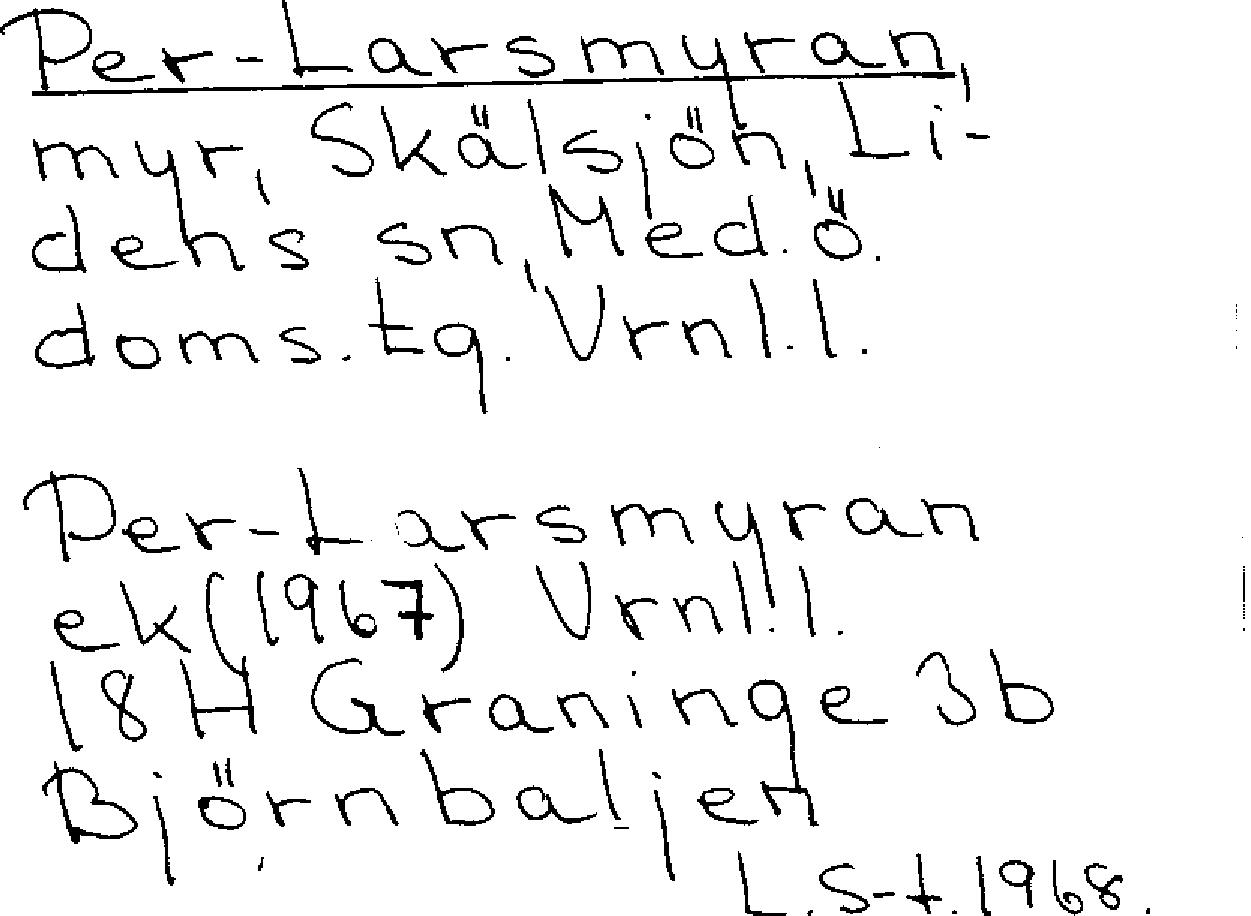 Per-Larsmyran,
myr, Skälsjön, Li-
dens sn, Med. ö.
doms. tg. Vrnl.l.
Per-Larsmyran
ek (1967) Vrnl.l.
18H Graninge 3b
Björnbaljen
L. S-t. 1968.